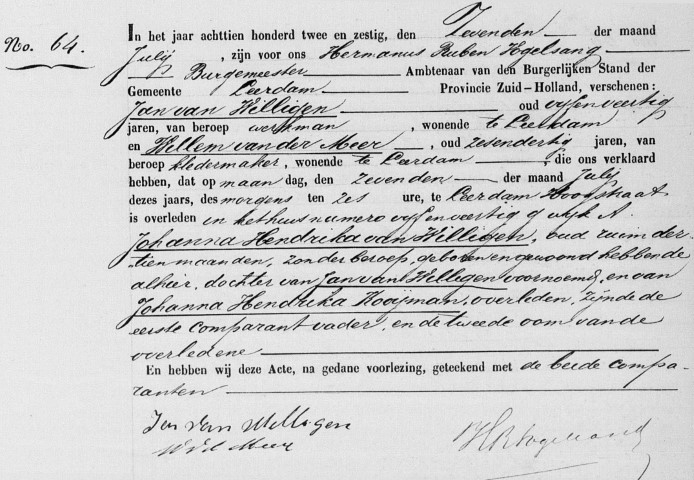 No. 64.
In het jaar achttien honderd twee en zestig, den Zevenden der maand
Julij, zijn voor ons Hermanus Ruben Hgelsang
Burgemeester Ambtenaar van den Burgerlijken Stand der
Gemeente Leerdam Provincie Zuid-Holland, verschenen:
Jan van Willigen oud vijfenveertig
jaren, van beroep werkman, wonende te Leerdam
en Willem van der Meer, oud zesendertig jaren, van
beroep kledermaker, wonende te Leerdam, die ons verklaard
hebben, dat op maandag, den zevenden der maand Julij
dezes jaars, des morgens ten zes ure, te Leerdam Hoogstraat
is overleden in het huis numero vijfenveertig wijk A.
Johanna Hendrika van Willigen, oud ruim der-
tien maanden, zonder beroep, geboren en gewoond hebbende
alhier, dochter van Jan van Willegen voornoemd, en van
Johanna Hendrika Kooijman, overleden, zijnde de
eerste comparant vader, en de tweede oom van de
overledene
En hebben wij deze Acte, na gedane voorlezing, geteekend met de beide compa-
ranten
Jan van Willigen
W v d Meer